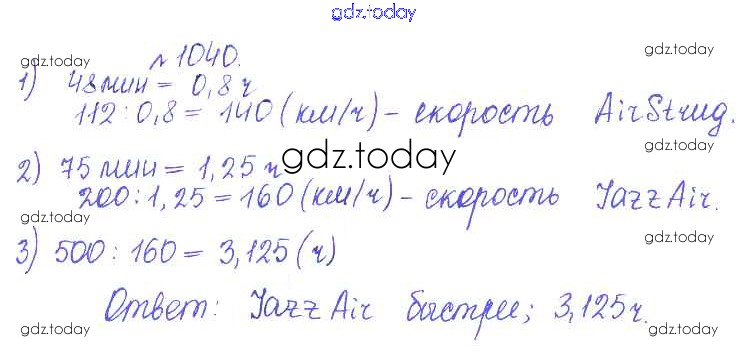 gdz.today
№ 1040.
gdz.today
gdz.today
1) 48 мин = 0,8 ч
112 : 0,8 = 140 (км/ч) - скорость AirStrug.
gdz.today
gdz.today
2) 75 мин = 1,25 ч
200 : 1,25 = 160 (км/ч) - скорость Jazz Air.
gdz.today
gdz.today
3) 500 : 160 = 3,125 (ч)
Ответ: Jazz Air быстрее; 3,125 ч.
gdz.today
gdz.today